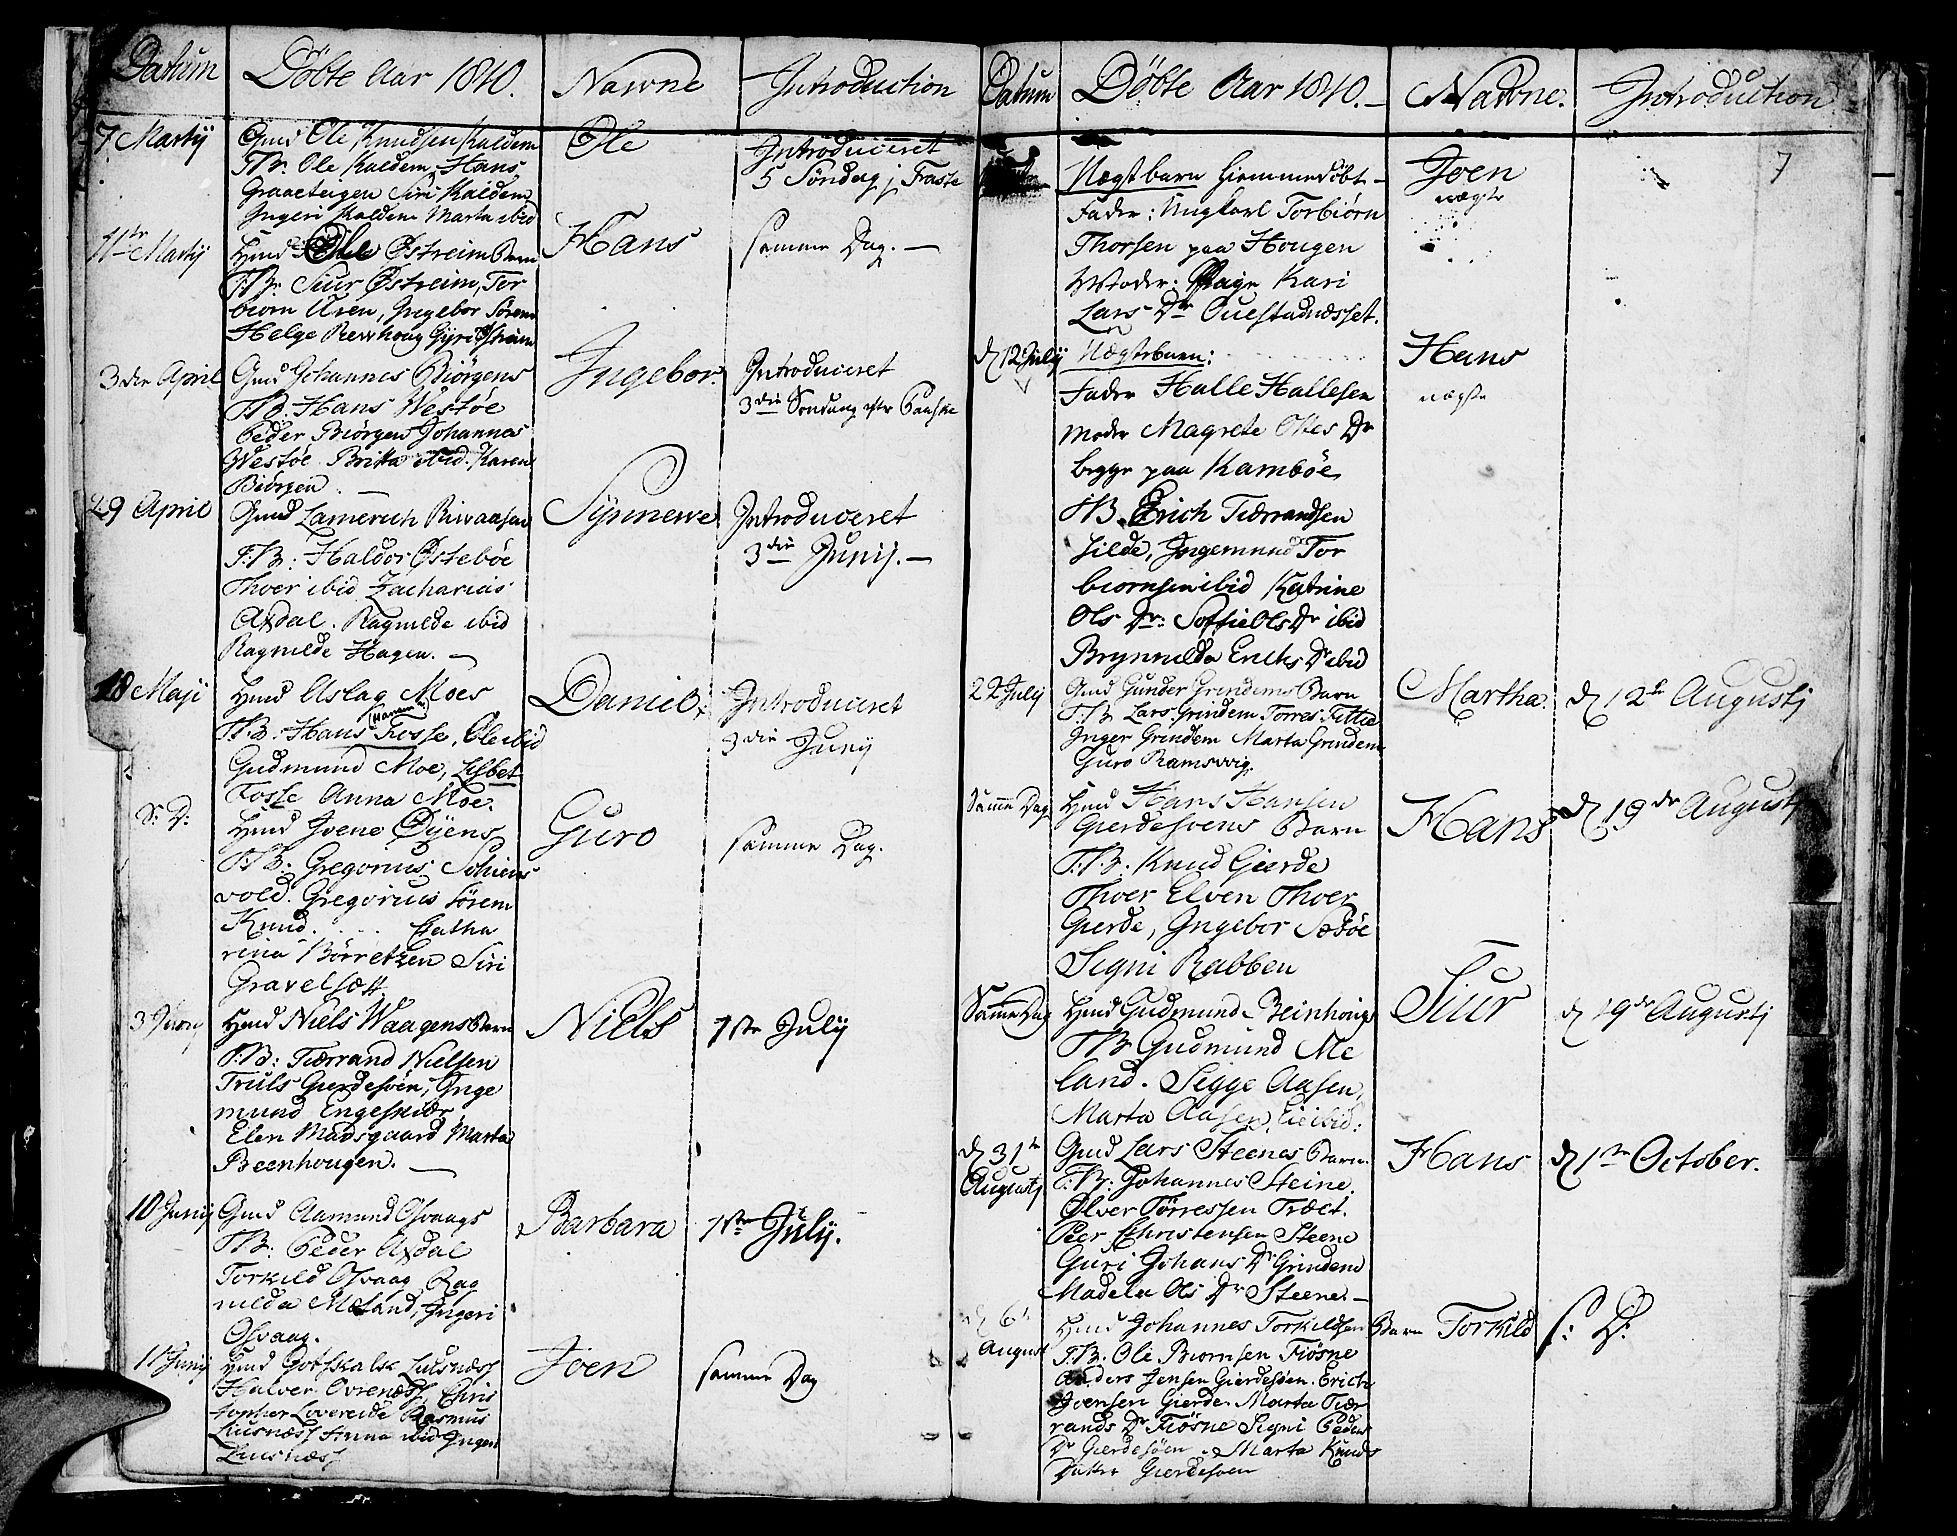 Datum
Döbte Aar 1810.
Nawne
Introduction
7 Martij
Gmd Ole Knudsen Kaldem
TB. Ole Kaldem, Hans
Graaeteigen Siri Kaldem
Ingeri Kaldem Marta ibid
Ole
Introduceret
5 Söndag j Faste
11te Martij
Hmd Ole Östreim Barn
TB. Siur Östreim, Tor
biörn Aasen, Ingebor
Helge Gyri Östreim
Hans
samme Dag. —
3die April
Gmd Johannes Biörgens
TB. Hans Westöe
Peder Biörgen Johannes
Westöe Britta ibid. Karen
Biörgen. —
Ingebor.
Introduceret
3die Sondag efter Paaske
29 April
Gmd Lamerich
F:B: Haldor Östeböe
Thoer ibid Zacharias
Axdal. Ragnilde ibid
Ragnilde Hagen. —
Synnewe
Introduceret
3die Junij. —
18 Maji
Hmd Aslag Moes
TB: Hans Fosse, Ole ibid
Gudmund Moe, Lisbet
Fosse Anna Moe.
Daniel
Introduceret
3die Junij
S: D:
Hmd Joene Öyens
F:B. Gregorius Schiens
vold. Gregorius
Knud. . . . . Catha
rina Börretzen Siri
Gravelsætt
Guro
samme Dag.
3 Junij
Hmd Niels Waagens Barn
F:B: Tiærrand Nielsen
Truls Gierdesöen, Inge
mund Engeskiær
Elen Madsgaard Marta
Beenhougen. —
Niels
1ste Julij
10 Junij
Gmd Aamund Osvaags
TB: Peder Axdal
Torkild Osvaag Rag
nilda Meland, Ingeri
Osvaag.
Barbara
1ste Julij.
11 Junij
Hmd Gotskalk Liusnæss
Halver Ovrenæss, Chris
topher Lovereide Rasmus
Liusnæss Anna ibid Inger
Liusnæss
Joen
samme Dag
Datum
Döbte Aar 1810. —
Nawne.
Introduction
7
Uægtbarn hiemmedöbt —
Fader: Ungkarl Torbiörn
Thorsen paa Hougen
Moder: Pige Kari
Lars Dr
Joen
uægte
d 12 Julij
Uægtebarn:
Fader Halle Hallesen
Moder Magrete Oles Dr
begge paa Kamböe
FB. Erich Tiærrandsen
Silde, Ingemund Tor
biornsen ibid Katrine
Ols Dr: Soffie Ols Dr ibid
Brynnilda Erichs Dr ibid
Hans
uægte
22 Julij
Gmd Gunder Grindems Barn
F:B Lars Grindem Torres
Inger Grindem Marta Grindem
Guro Ramsvig.
Martha.
d 12te Augustj
Samme Dag
Hmd Hans Hansen
Gierdesoens Barn
F:B: Knud Gierde
Thoer Elven Thoer
Gierde, Ingebor Sæböe
Signi Rabben
Hans
d 19de Augustj
Samme Dag
Hmd Gudmund Beinhougs
TB Gudmund Me
land. Sigge Aasen,
Marta Aasen, ibid:
Siur
d 19de Augustj
d 31te
Augustj
Gmd Lars Steenes Barn.
F:B: Johannes Steine.
Ölver Törressen Træet.
Peer Christensen Steene
Guri Johans Dr Grindem
Madela Ols Dr Steene. —
Hans
d 1te October.
d 6te
August
Hmd Johannes Torkildsen Barn
F:B. Ole Biornsen Fiösne
Anders Jensen Gierdesöen. Erich
Joensen Gierde. Marta Tiær
rands Dr Fiösne Signi Peders
Dr Gierdesöen. Marta Knuds
Datter Gierdesoen
Torkild
S: D: